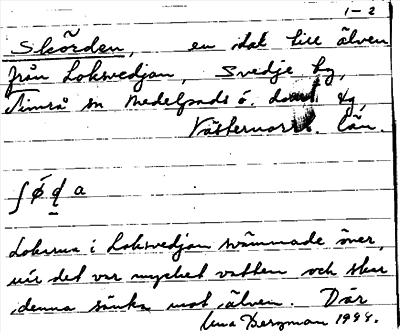 1-2
Skörden, en idal till älven
från Loksvedjan, Svedje by,
Timrå sn Medelpads ö. doms. hg,
Västernorrl. län.
ʃǿḍa
Lokarna i Loksvedjan svämmade över,
när det var mycket vatten och skar
denna sänka mot älven. Där
Lena Bergman 1944.